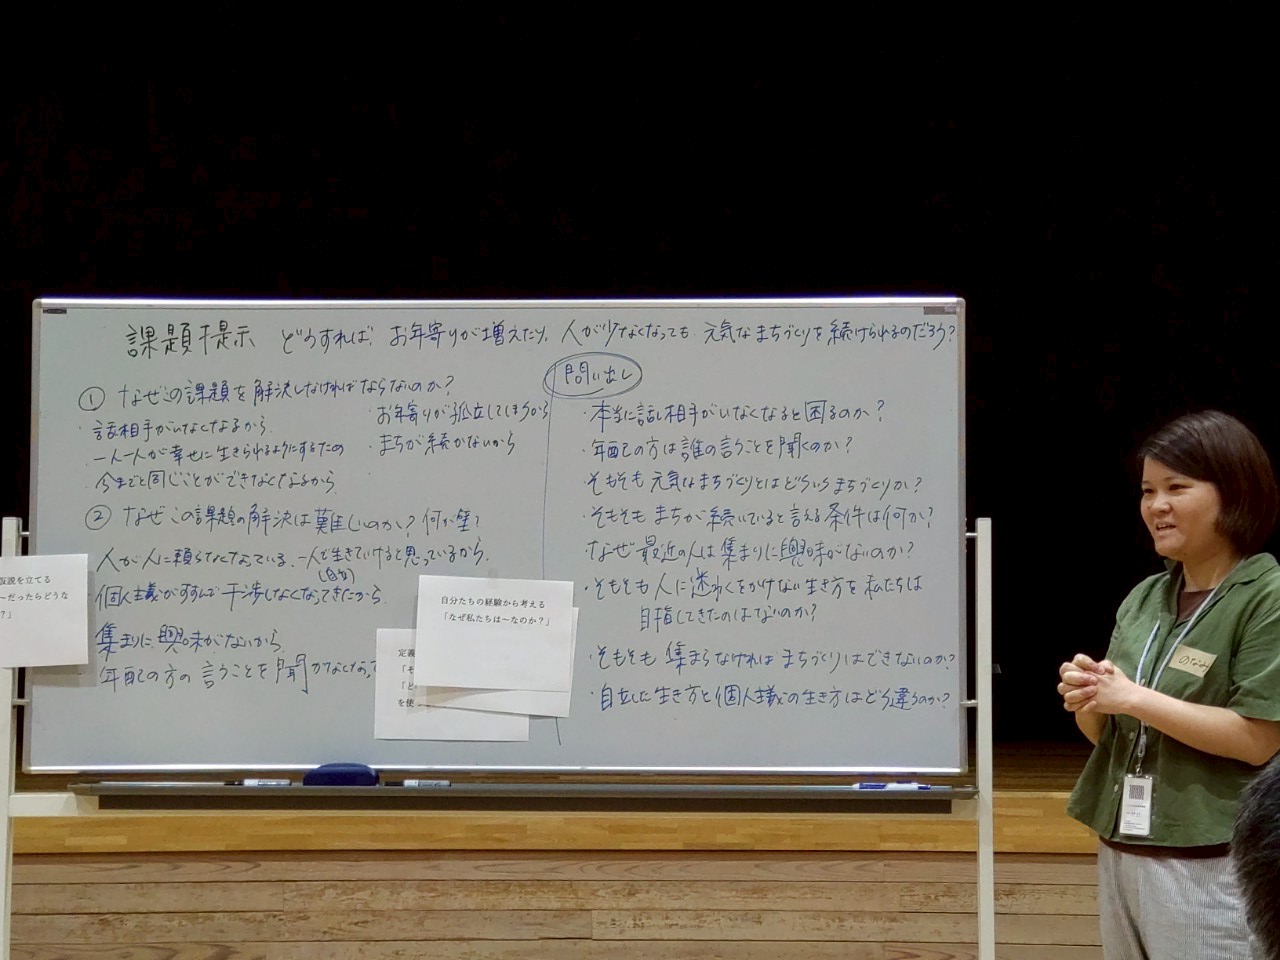 課題提示 どうすれば、お年寄りが増えたり、人が少なくなっても 元気なまちづくりを続けられるのだろう?
① なぜこの課題を解決しなければならないのか?
・話相手がいなくなるから。
・一人一人が幸せに生きられるようにするため
・今までと同じことができなくなるから。
・お年寄りが孤立してしまうから
・まちが続かないから
② なぜこの課題の解決は難しいのか? 何が壁?
人が人に頼らなくなっている、一人で生きていけると思っているから。
(自分)
個人主義がすすんで干渉しなくなってきたから。
集まりに興味がないから。
年配の方の言うことを聞かなくなって
問い出し
・本当に話し相手がいなくなると困るのか?
・年配の方は誰の言うことを聞くのか?
・そもそも元気なまちづくりとはどういうまちづくりか?
・そもそもまちが続いていると言える条件は何か?
・なぜ最近の人は集まりに興味がないのか?
・そもそも人に迷わくをかけない生き方を私たちは
目指してきたのではないのか?
・そもそも集まらなければまちづくりはできないのか?
・自立した生き方と個人主義の生き方はどう違うのか?
仮説を立てる
〜だったらどうな
?」
自分たちの経験から考える
「なぜ私たちは〜なのか?」
定義
「そ
「ど
を使
のなみ